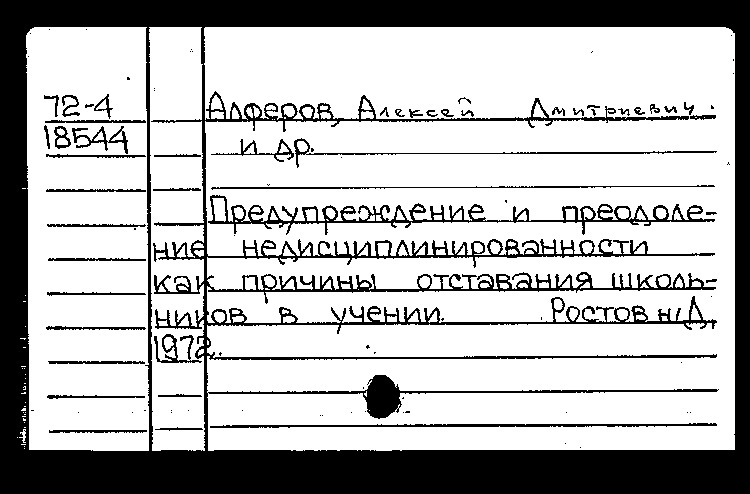 72-4 Алферов, Алексей Дмитриевич.
18544 и др.
Предупреждение и преодоле-
ние недисциплинированности
как причины отставания школь-
ников в учении. Ростов н/Д,
1972.